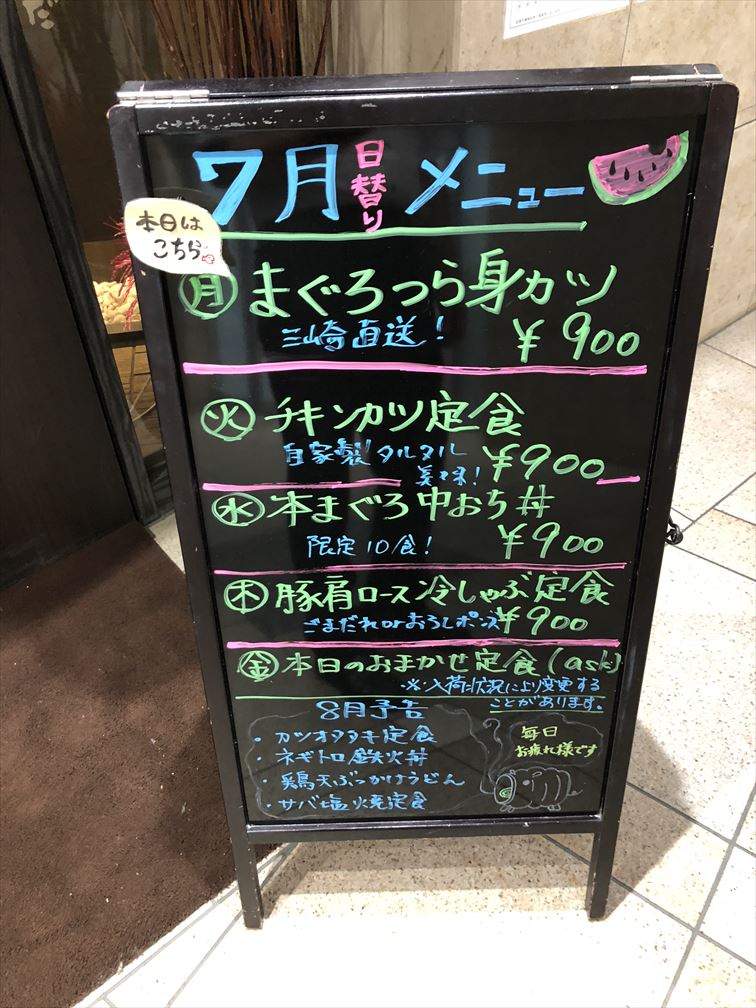 7月日替りメニュー
本日は
こちら
月 まぐろつら身カツ
三崎直送! ¥900
火 チキンカツ定食
自家製タルタル
美味! ¥900
水 本まぐろ中おち丼
限定10食! ¥900
木 豚肩ロース冷しゃぶ定食
ごまだれorおろしポンズ ¥900
金 本日のおまかせ定食(ask)
※入荷状況により変更する
ことがあります。
8月予告
・カツオタタキ定食
・ネギトロ鉄火丼
・鶏天ぶっかけうどん
・サバ塩焼定食
毎日
お疲れ様です